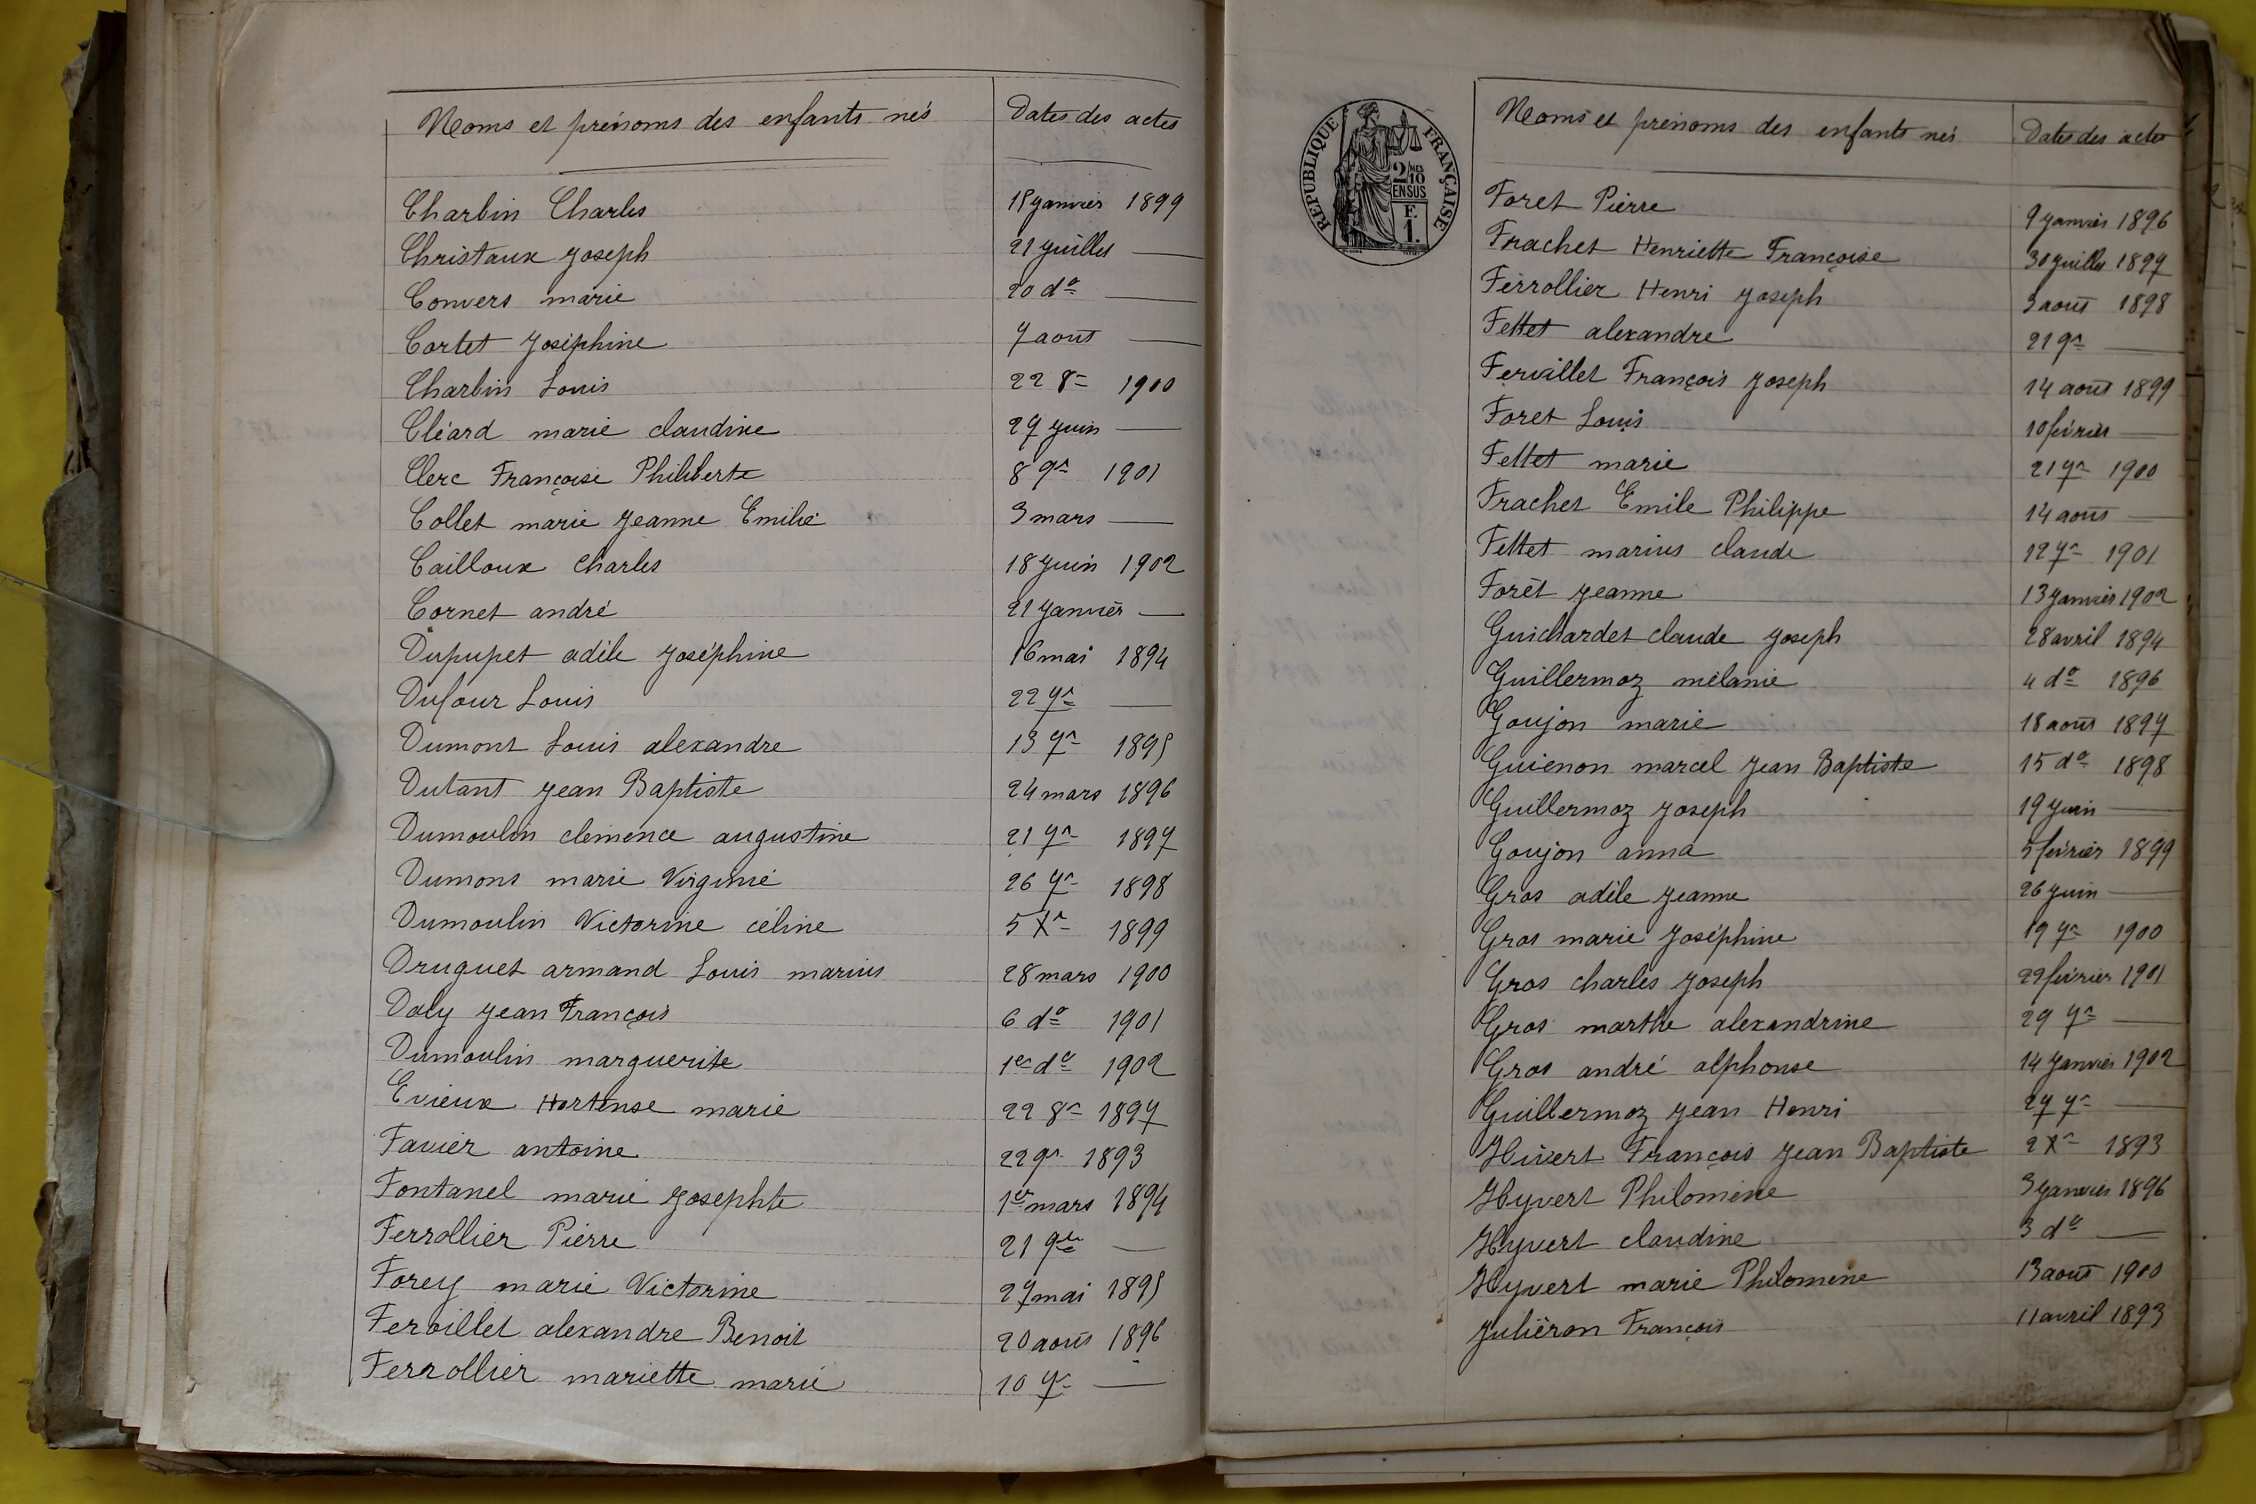 Noms et prénoms des enfants nés Dates des actes
Charbin Charles 15 Janvier 1899
Christaux Joseph 21 Juillet —
Convers marie 20 do —
Cortet Joséphine 7 aout —
Charbin Louis 22 8re 1900
Cléard marie claudine 27 Juin —
Clerc Françoise Philiberte 8 9re 1901
Collet marie Jeanne Emilie 3 mars —
Cailloux Charles 18 Juin 1902
Cornet andré 21 Janvier —
Dupupet adèle Joséphine 16 mai 1894
Dufour Louis 22 7re —
Dumont Louis alexandre 13 7re 1895
Dutant Jean Baptiste 24 mars 1896
Dumoulin clémence augustine 21 7re 1897
Dumont marie Virginie 26 7re 1898
Dumoulin Victorine céline 5 Xre 1899
Druguet armand Louis marius 28 mars 1900
Daly Jean François 6 do 1901
Dumoulin marguerite 1er do 1902
Evieux Hortense marie 22 8re 1897
Favier antoine 22 9re 1893
Fontanel marie Josephte 1er mars 1894
Ferrollier Pierre 21 9bre —
Forey marie Victorine 27 mai 1895
Fervillet alexandre Benoit 20 aout 1896
Ferrollier mariette marie 10 7re —
RÉPUBLIQUE FRANÇAISE
2/10MES
EN SUS
F.
1.
Noms et prénoms des enfants nés Dates des actes
Foret Pierre 9 Janvier 1896
Frachet Henriette Françoise 30 Juillet 1897
Ferrollier Henri Joseph 3 aout 1898
Fettet alexandre 21 9re —
Fervillet François Joseph 14 aout 1899
Foret Louis 10 février —
Fettet marie 21 7re 1900
Frachet Emile Philippe 14 aout —
Fettet marius claude 12 7re 1901
Forêt Jeanne 13 Janvier 1902
Guichardet claude Joseph 28 avril 1894
Guillermoz mélanie 4 do 1896
Goujon marie 18 aout 1897
Guienon marcel Jean Baptiste 15 do 1898
Guillermoz Joseph 19 Juin —
Goujon anna 5 février 1899
Gros adèle Jeanne 26 Juin —
Gros marie Joséphine 19 7re 1900
Gros charles Joseph 22 février 1901
Gros marthe alexandrine 29 7re —
Gros andré alphonse 14 Janvier 1902
Guillermoz Jean Henri 27 7re —
Hivert François Jean Baptiste 2 Xre 1893
Hyvert Philomène 3 Janvier 1896
Hyvert claudine 3 do —
Hyvert marie Philomène 13 aout 1900
Juliéron François 11 avril 1893